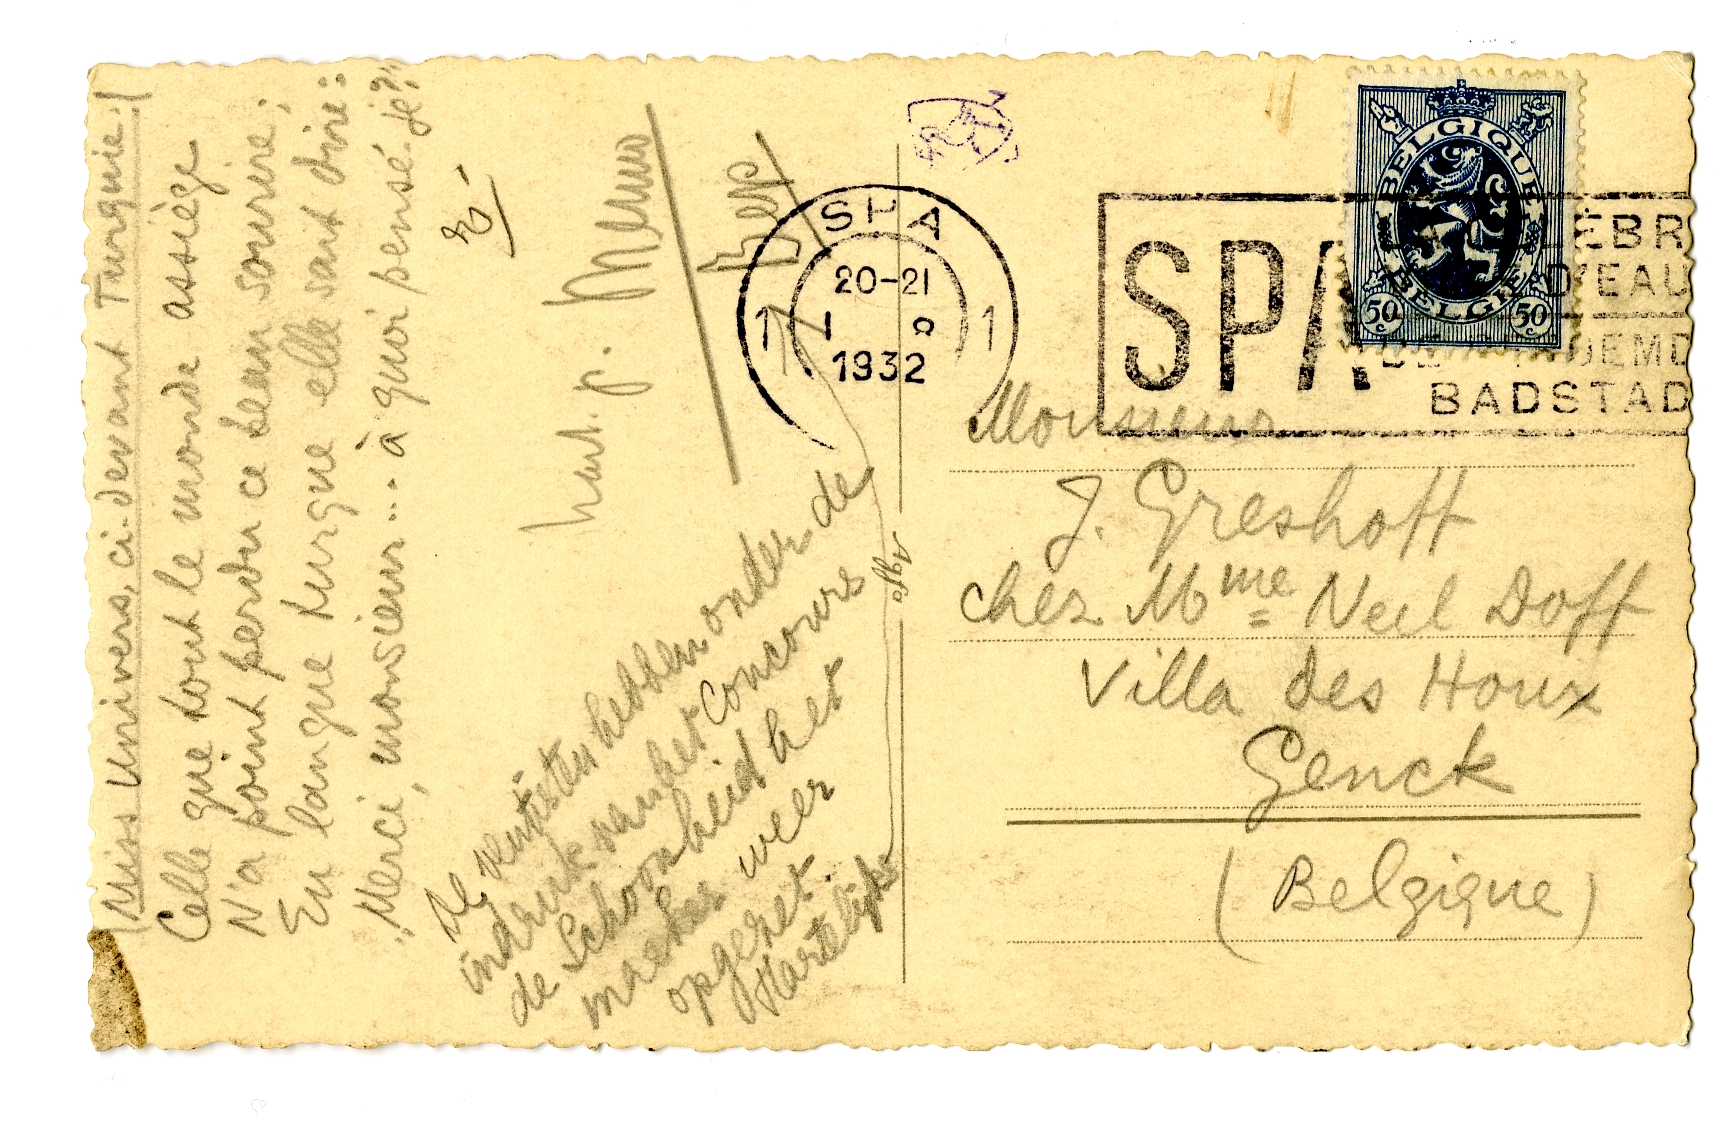 (Miss Univers, ci-devant Turquie.)
Celle que tout le monde assiège
N'a point perdu ce beau sourire;
En langue turque elle sait dire:
"Merci, monsieur... à quoi pensé-je?"
hart. p. Menno
Bep
De artisten hebben onder de
indruk van het Concours
de Schoonheid het
maken weer
opgezet.
Hartelijks
SPA
20-21
1 1
1932
SPA
BADSTAD
BELGIQUE
BELGIE
50c 50c
Monsieur
J. Greshoff
chez Mme Neel Doff
Villa des Houx
Genck
(Belgique)